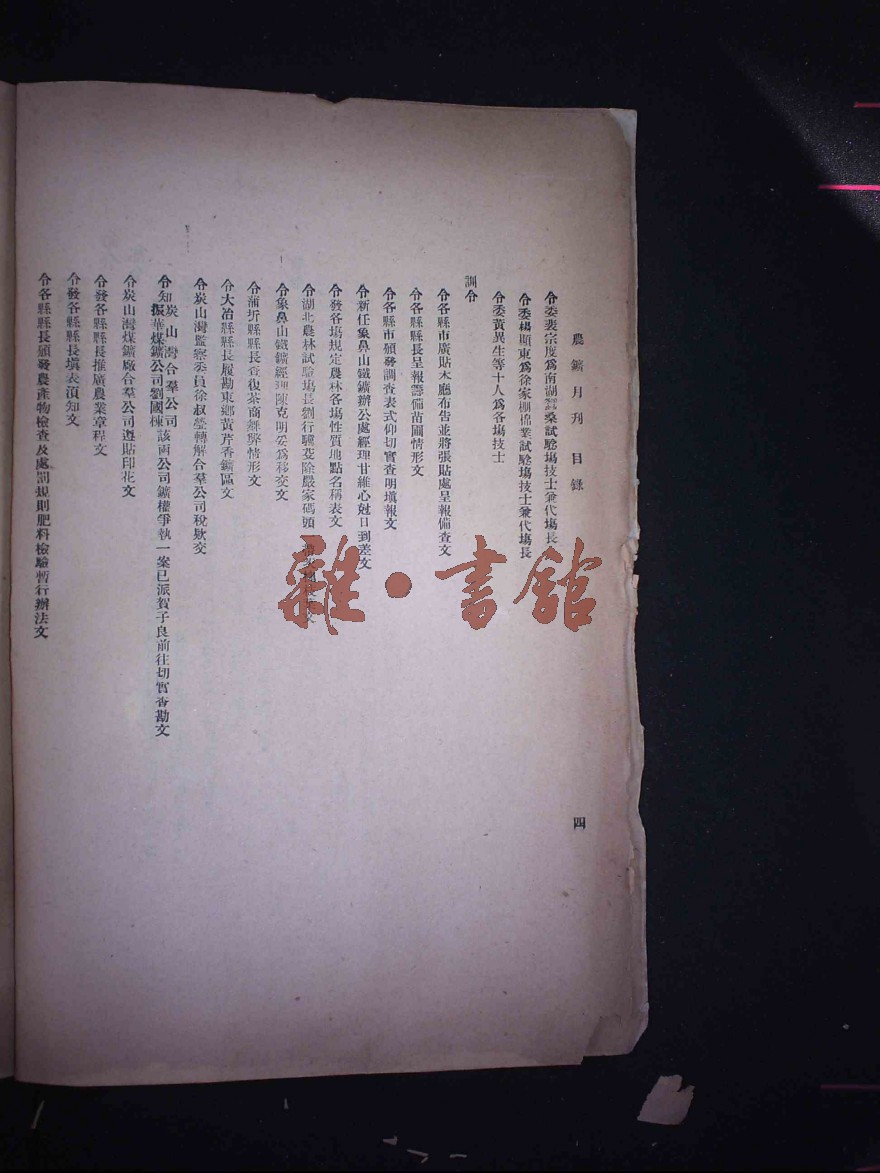 農鑛月刊 目錄
四
令委裴宗度爲南湖蠶桑試驗塲技士兼代塲長
令委楊顯東爲徐家棚棉業試驗塲技士兼代塲長
令委黃異生等十八爲各塲技士
訓令
令各縣市廣貼本廳布告並將張貼處呈報備查文
令各縣縣長呈報籌備苗圃情形文
令各縣市頒發調查表式仰切實查明塡報文
令新任象鼻山鐵鑛辦公處經理甘維心尅日到差文
令發各塲規定農林各塲性質地點名稱表文
令湖北農林試驗塲長劉行驥芟除嚴家碼頭文
令象鼻山鐵鑛經理陳克明妥爲移交文
令蒲圻縣縣長查復茶商舞弊情形文
令大冶縣縣長履勘東鄉黃芹香鑛區文
令炭山灣監察委員徐叔瑩轉解合羣公司稅欵交
令知炭山灣合羣公司振華煤鑛公司劉國棟該兩公司鑛權爭執一案已派賀子良前往切實查勘文
令炭山灣煤鑛廠合羣公司遵貼印花文
令發各縣縣長推廣農業章程文
令發各縣縣長塡表須知文
令各縣縣長頒發農產物檢查及處罰規則肥料檢驗暫行辦法文
雜·書館